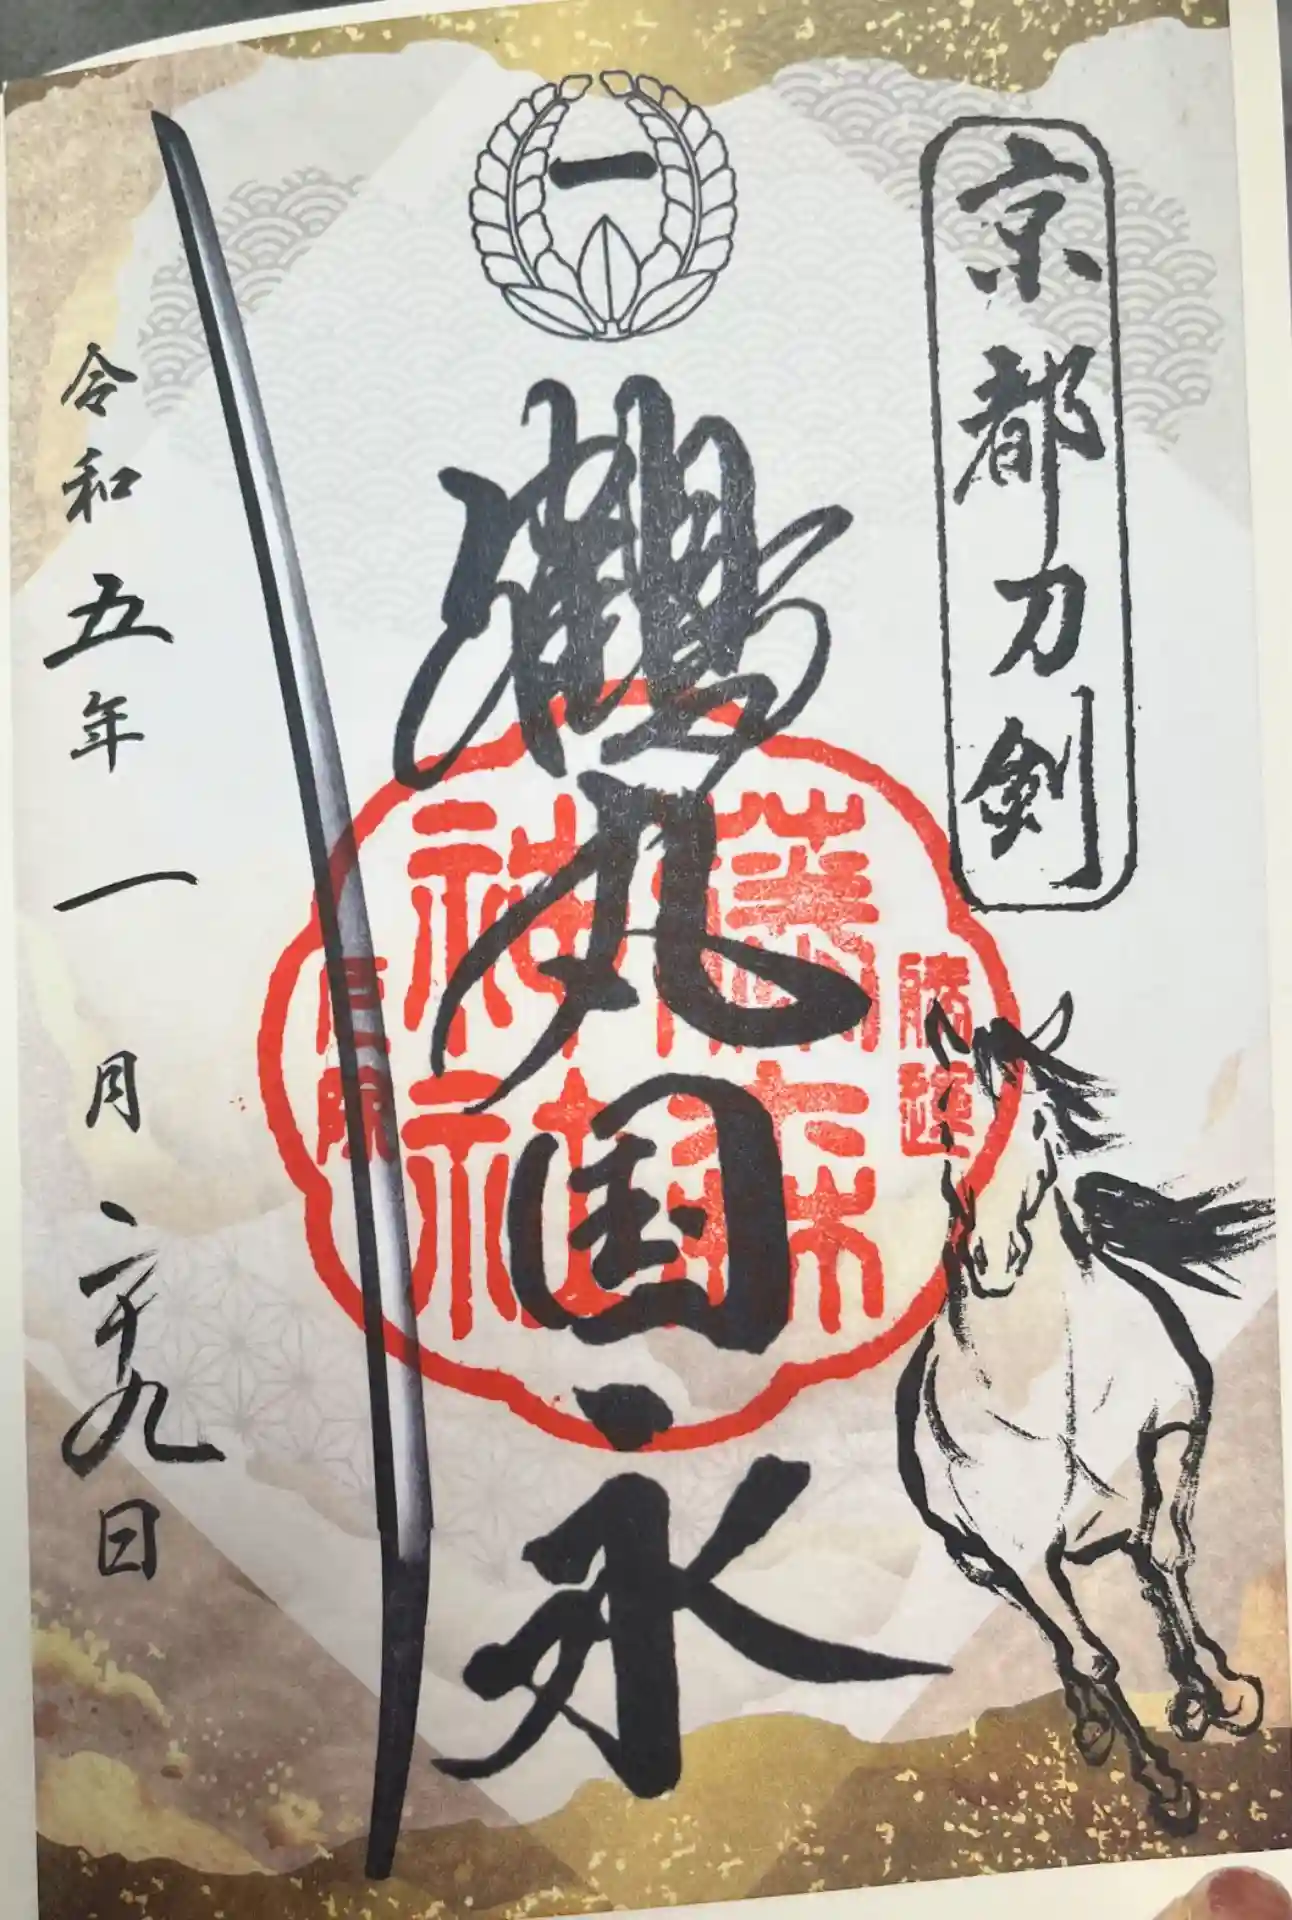 京都刀剣
一
鶴丸国永
勝運
藤森
神社
令和五年一月二十九日